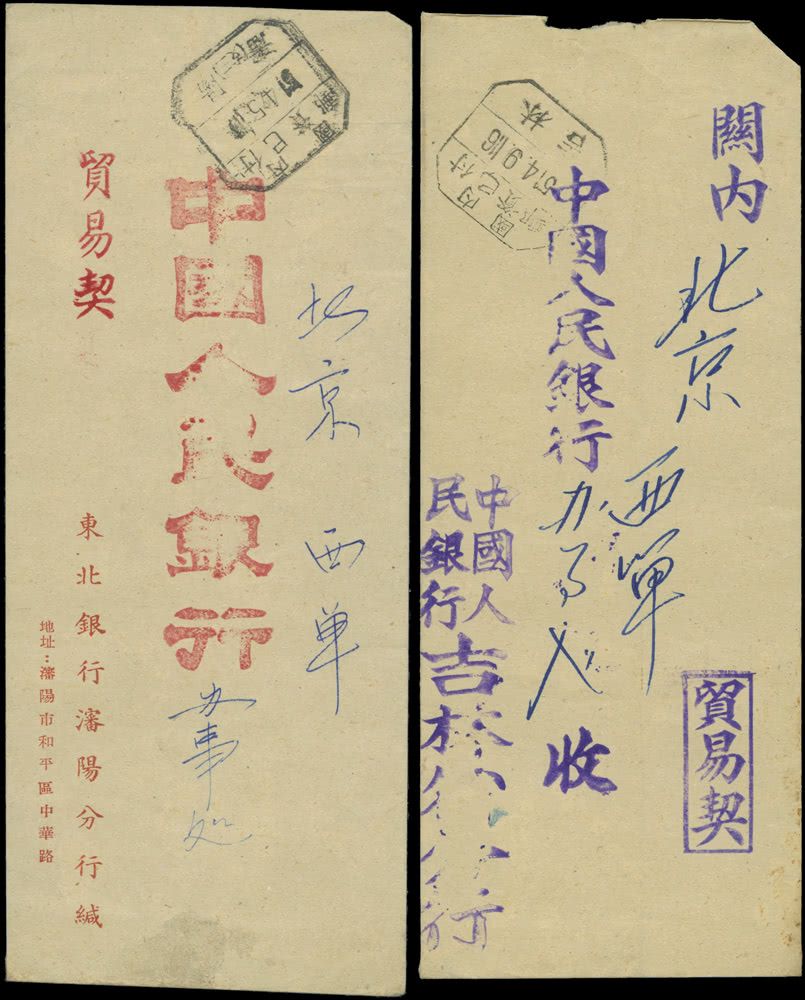 北京 西单
中國人民銀行
办事处
貿易契
東北銀行瀋陽分行緘
地址：瀋陽市和平區中華路
國內
郵資已付
關内
北京 西單
中國人民銀行
办事处 收
貿易契
中國人
民銀行
吉林
國内
郵資已付
54.9.16
吉林